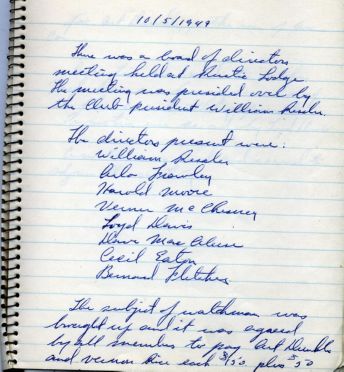 10/5/1949
There was a board of directors
meeting held at Rustic Lodge
The meeting was presided over by
the Club president William Ressler.
The directors present were:
William Ressler
Harold Moore
Verner McChesney
Loyd Davis
Dave Mac
Cecil Eaton
Bernard Fletcher
The subject of watchman was
brought up and it was agreed
by all members to pay Art
and vernon each 3/50 plus 50